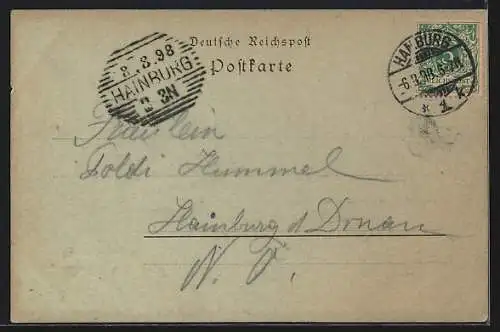 Deutsche Reichspost
Postkarte
8.3.98
HAINBURG
HAMBURG
* 1 k
Fräulein
Poldi Hummel
Hainburg d Donau
N. Ö.